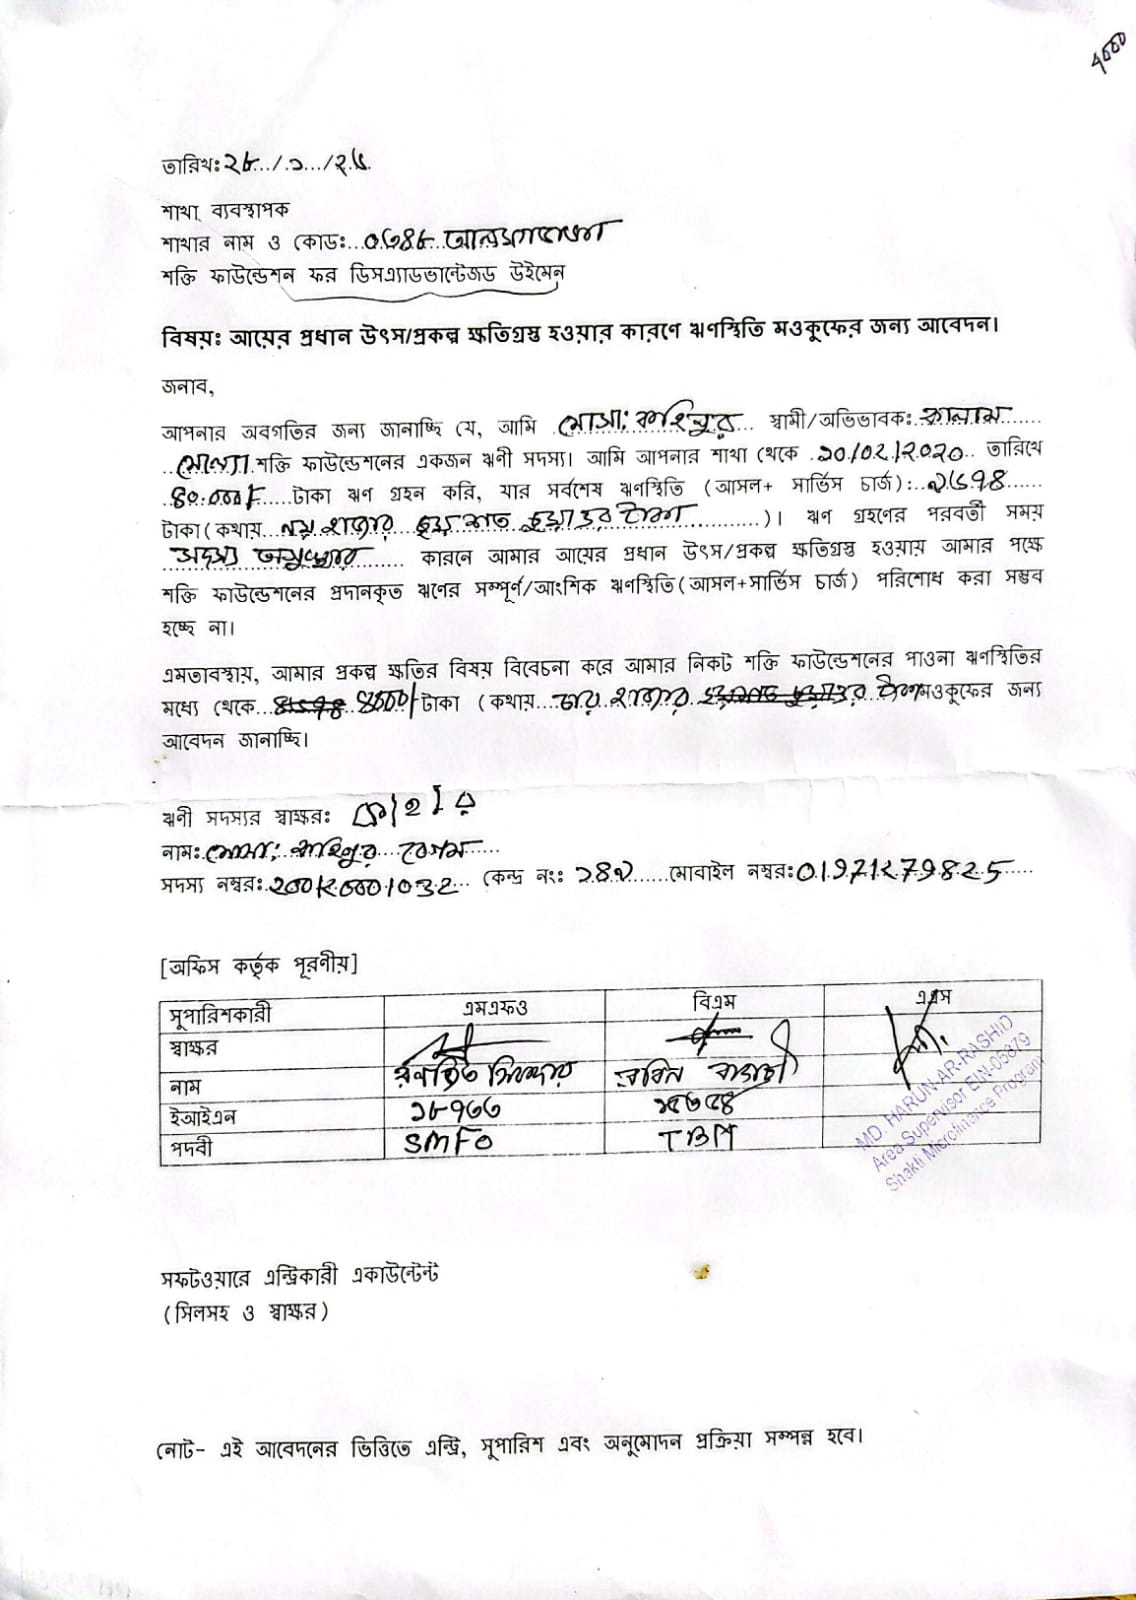 তারিখঃ২৮.../.১.../২.৫.
শাখা ব্যবস্থাপক
শাখার নাম ও কোডঃ...০৬৪৮
শক্তি ফাউন্ডেশন ফর ডিসএ্যাডভান্টেজড উইমেন
বিষয়ঃ আয়ের প্রধান উৎস/প্রকল্প ক্ষতিগ্রস্ত হওয়ার কারণে ঋণস্থিতি মওকুফের জন্য আবেদন।
জনাব,
আপনার অবগতির জন্য জানাচ্ছি যে, আমি .মোসা: কহিনুর... স্বামী/অভিভাবকঃ.কালাম......
..মোল্যা.শক্তি ফাউন্ডেশনের একজন ঋণী সদস্য। আমি আপনার শাখা থেকে .১০/০২/২০২০.. তারিখে
.৪০.০০০/-.....টাকা ঋণ গ্রহন করি, যার সর্বশেষ ঋণস্থিতি (আসল+ সার্ভিস চার্জ):..৯৬৭৪......
টাকা(কথায়..নয় হাজার ছয় শত চুয়াত্তর টাকা............)। ঋণ গ্রহণের পরবর্তী সময়
..সদস্য অসুস্থ্যের........ কারনে আমার আয়ের প্রধান উৎস/প্রকল্প ক্ষতিগ্রস্ত হওয়ায় আমার পক্ষে
শক্তি ফাউন্ডেশনের প্রদানকৃত ঋণের সম্পূর্ণ/আংশিক ঋণস্থিতি(আসল+সার্ভিস চার্জ) পরিশোধ করা সম্ভব
হচ্ছে না।
এমতাবস্থায়, আমার প্রকল্প ক্ষতির বিষয় বিবেচনা করে আমার নিকট শক্তি ফাউন্ডেশনের পাওনা ঋণস্থিতির
মধ্যে থেকে.. ৪০০০/টাকা (কথায়...চার হাজার টাকামওকুফের জন্য
আবেদন জানাচ্ছি।
ঋণী সদস্যর স্বাক্ষরঃ
নামঃ.মোসা: কহিনুর বেগম.....
সদস্য নম্বরঃ.200120001032... কেন্দ্র নংঃ ১৪২......মোবাইল নম্বরঃ01971279825....
[অফিস কর্তৃক পূরণীয়]
সুপারিশকারী এমএফও বিএম এএস
স্বাক্ষর
নাম
ইআইএন ১৮৭৬৬ ১৫৬৫৪
পদবী SMFO TBM
MD. HARUN-AR-RASHID
Area Supervisor EIN-05879
Shakti Microfinance Program
সফটওয়ারে এন্ট্রিকারী একাউন্টেন্ট
(সিলসহ ও স্বাক্ষর)
নোট- এই আবেদনের ভিত্তিতে এন্ট্রি, সুপারিশ এবং অনুমোদন প্রক্রিয়া সম্পন্ন হবে।